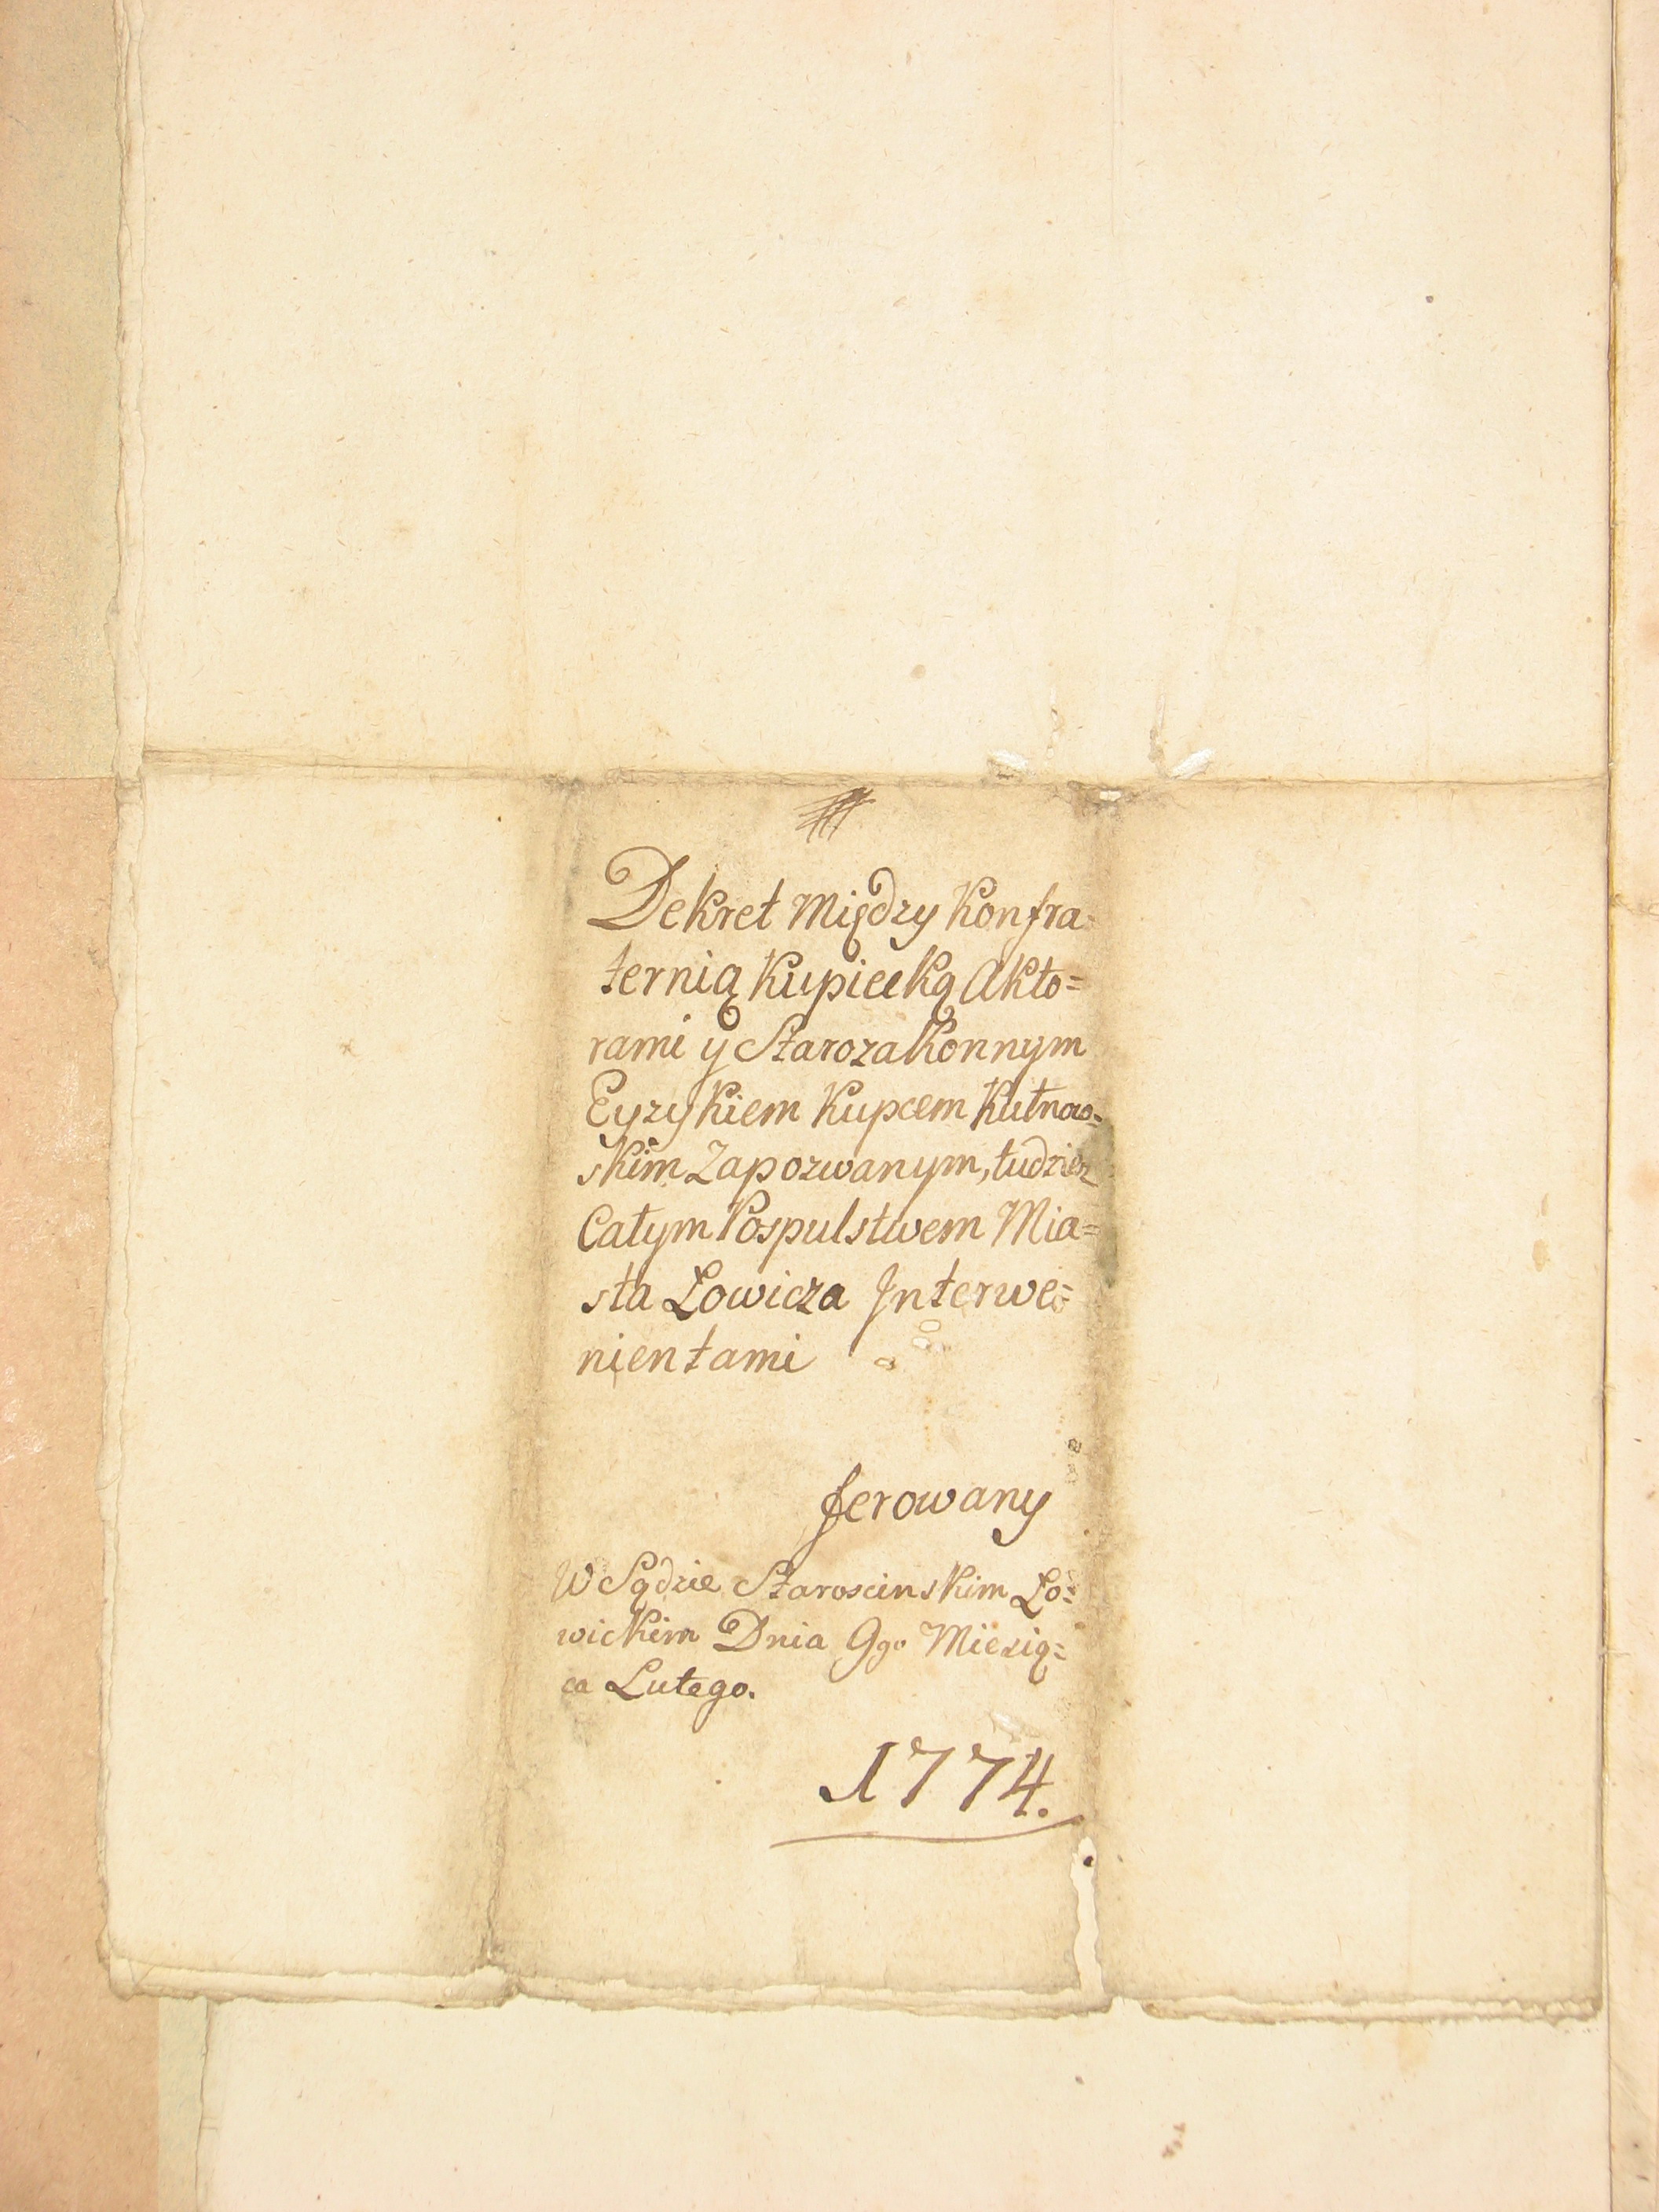 Dekret Między Konfra=
ternią Kupiecką Akto=
rami y Starozakonnym
Eyzykiem Kupcem Kutnow=
skim Zapozwanym, tudzież
Całym Pospulstwem Mia=
sta Łowicza Interwe=
nientami
ferowany
W Sądzie Staroscinskim Ło=
wickim Dnia 9go Miesią=
ca Lutego.
1774.